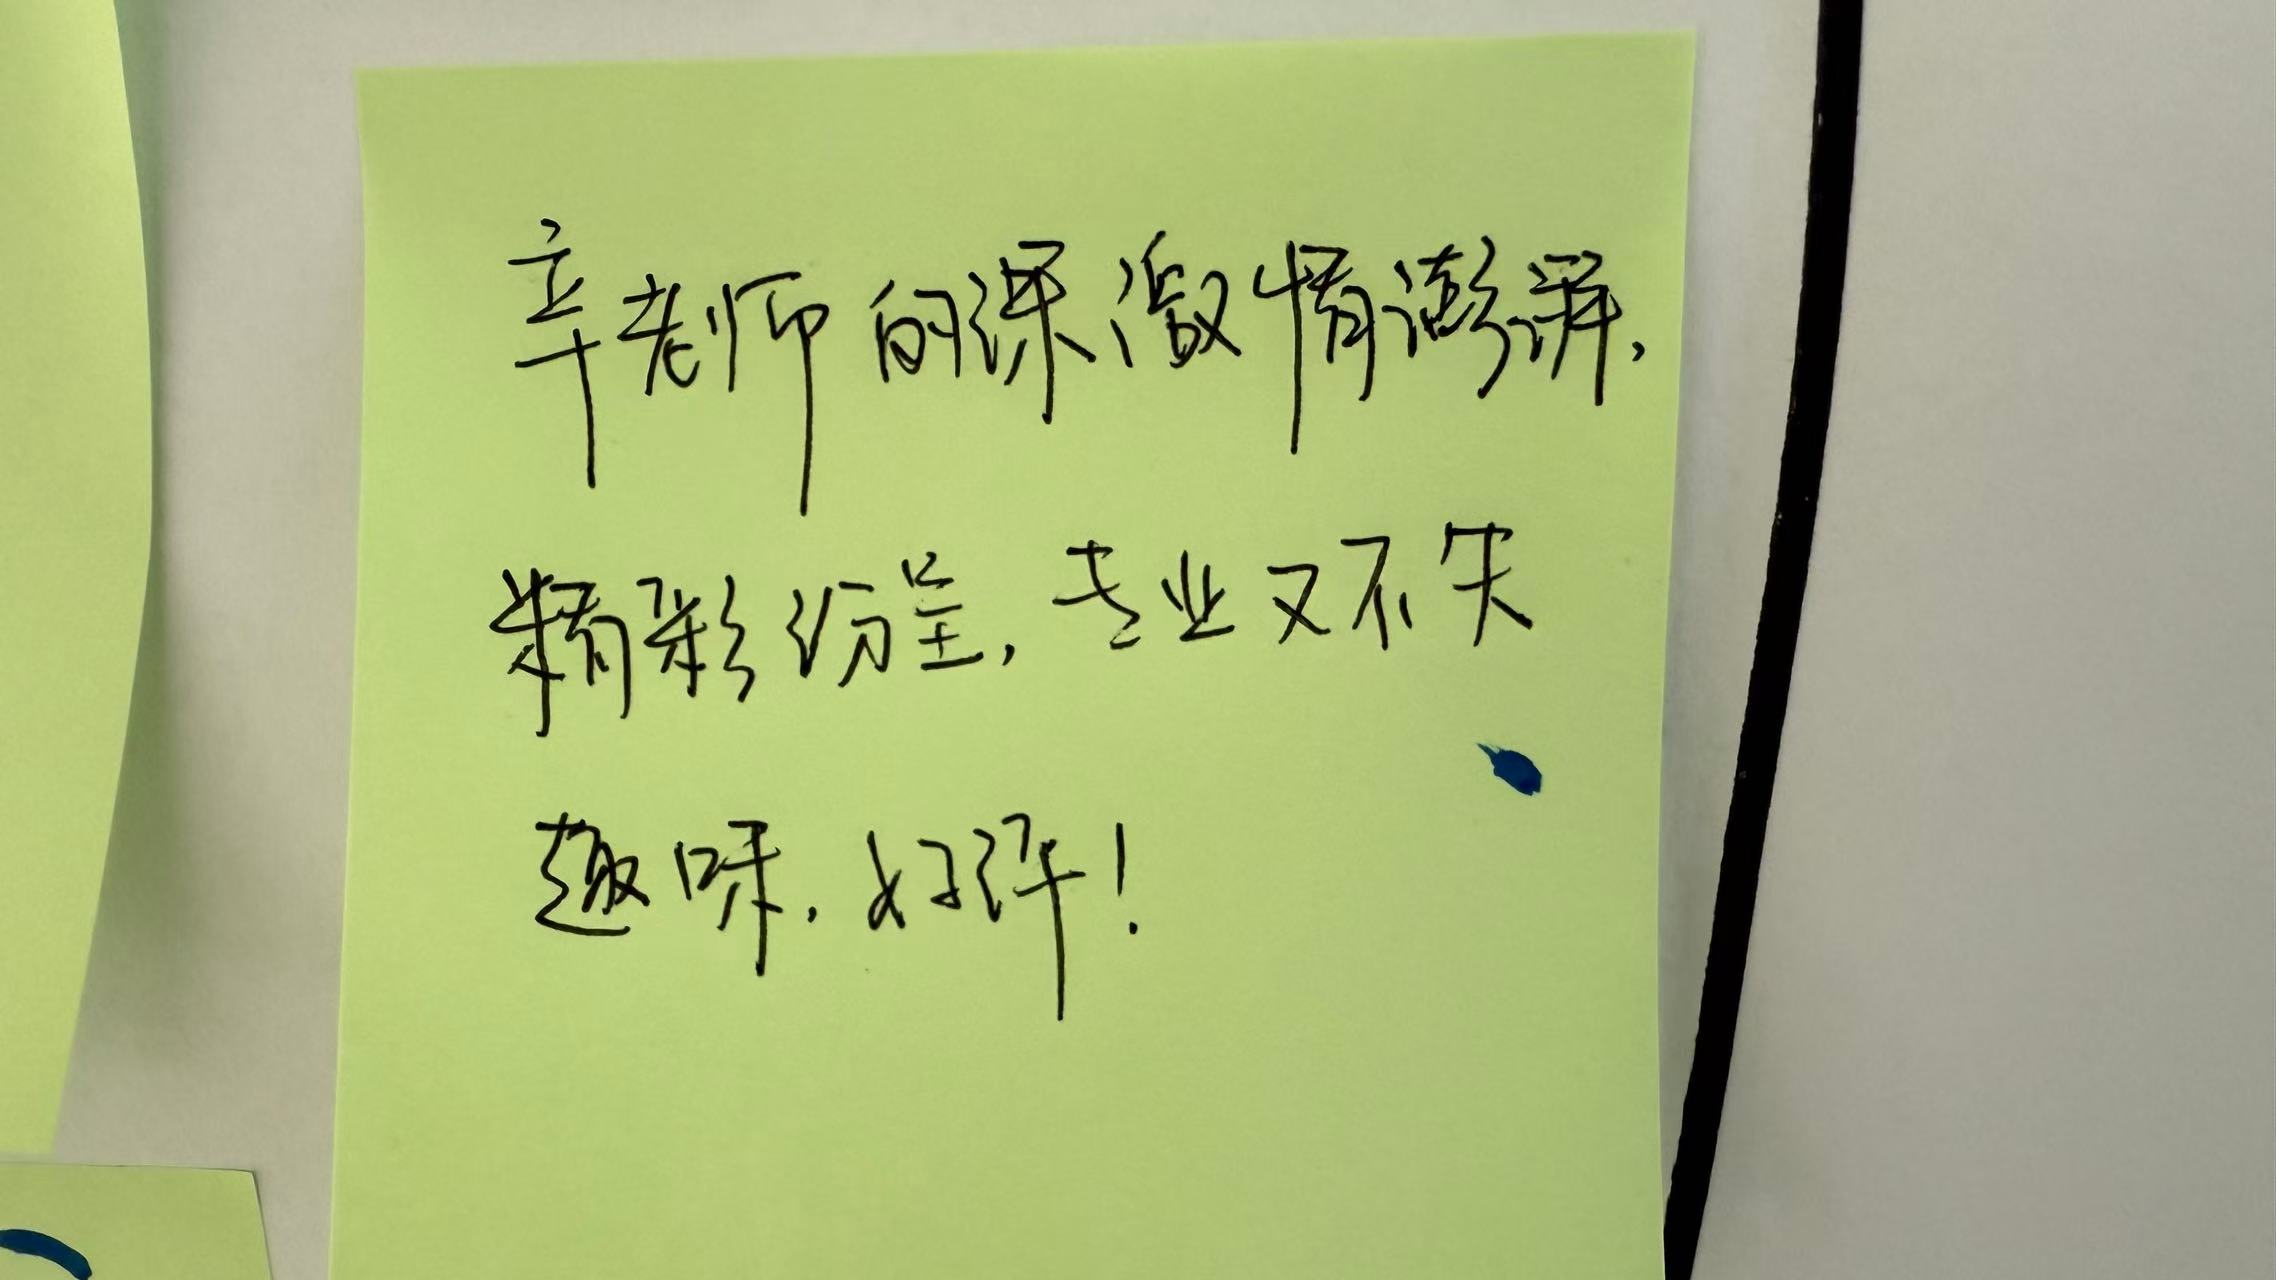 辛老师的课激情澎湃,
精彩纷呈,专业又不失
趣味,好评!